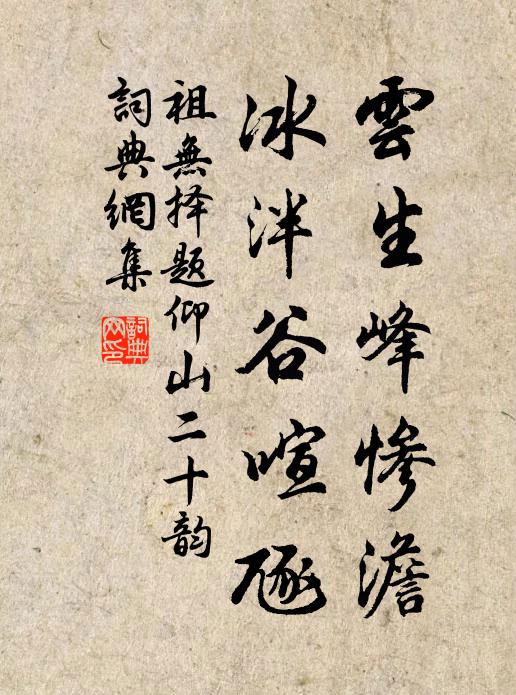 雲生峰慘澹
冰泮谷喧豗
祖無择題仰山二十韵
詞典網集
詞典网印